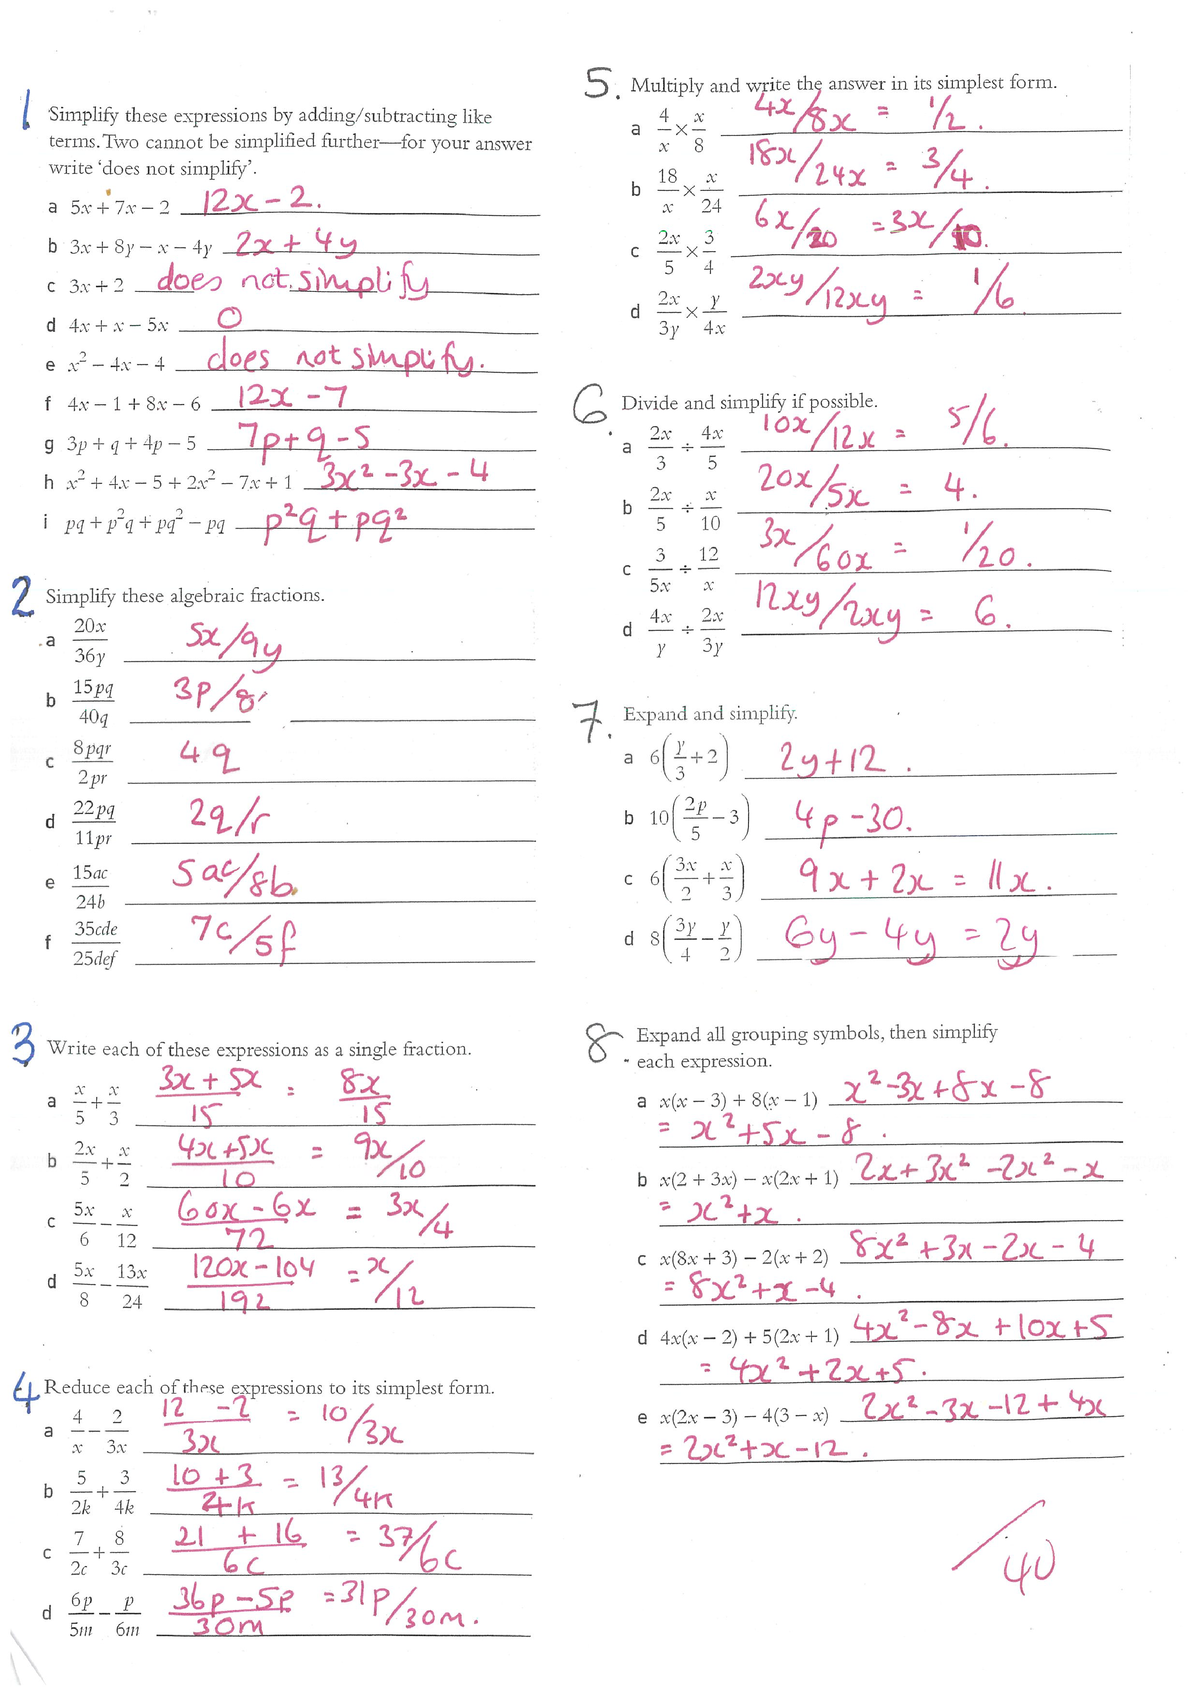 1
Simplify these expressions by adding/subtracting like
terms. Two cannot be simplified further—for your answer
write 'does not simplify'.
a 5x + 7x − 2 12x - 2.
b 3x + 8y − x − 4y 2x + 4y
c 3x + 2 does not simplify
d 4x + x − 5x 0
e x² − 4x − 4 does not simplify.
f 4x − 1 + 8x − 6 12x - 7
g 3p + q + 4p − 5 7p + q - 5
h x² + 4x − 5 + 2x² − 7x + 1 3x² - 3x - 4
i pq + p²q + pq² − pq p²q + pq²
2 Simplify these algebraic fractions.
a 20x/36y 5x/9y
b 15pq/40q 3p/8
c 8pqr/2pr 4q
d 22pq/11pr 2q/r
e 15ac/24b 5ac/8b
f 35cde/25def 7c/5f
3 Write each of these expressions as a single fraction.
a x/5 + x/3 (3x + 5x)/15 = 8x/15
b 2x/5 + x/2 (4x + 5x)/10 = 9x/10
c 5x/6 − x/12 (60x - 6x)/72 = 3x/4
d 5x/8 − 13x/24 (120x - 104)/192 = x/12
4 Reduce each of these expressions to its simplest form.
a 4/x − 2/3x (12 - 2)/3x = 10/3x
b 5/2k + 3/4k (10 + 3)/4k = 13/4k
c 7/2c + 8/3c (21 + 16)/6c = 37/6c
d 6p/5m − p/6m (36p - 5p)/30m = 31p/30m.
5. Multiply and write the answer in its simplest form.
a 4/x × x/8 4x/8x = 1/2.
b 18/x × x/24 18x/24x = 3/4.
c 2x/5 × 3/4 6x/20 = 3x/10.
d 2x/3y × y/4x 2xy/12xy = 1/6
6. Divide and simplify if possible.
a 2x/3 ÷ 4x/5 10x/12x = 5/6.
b 2x/5 ÷ x/10 20x/5x = 4.
c 3/5x ÷ 12/x 3x/60x = 1/20.
d 4x/y ÷ 2x/3y 12xy/2xy = 6.
7. Expand and simplify.
a 6(y/3 + 2) 2y + 12.
b 10(2p/5 − 3) 4p - 30.
c 6(3x/2 + x/3) 9x + 2x = 11x.
d 8(3y/4 − y/2) 6y - 4y = 2y
8 Expand all grouping symbols, then simplify
each expression.
a x(x − 3) + 8(x − 1) x² - 3x + 8x - 8
= x² + 5x - 8.
b x(2 + 3x) − x(2x + 1) 2x + 3x² - 2x² - x
= x² + x.
c x(8x + 3) − 2(x + 2) 8x² + 3x - 2x - 4
= 8x² + x - 4.
d 4x(x − 2) + 5(2x + 1) 4x² - 8x + 10x + 5
= 4x² + 2x + 5.
e x(2x − 3) − 4(3 − x) 2x² - 3x - 12 + 4x
= 2x² + x - 12.
/40